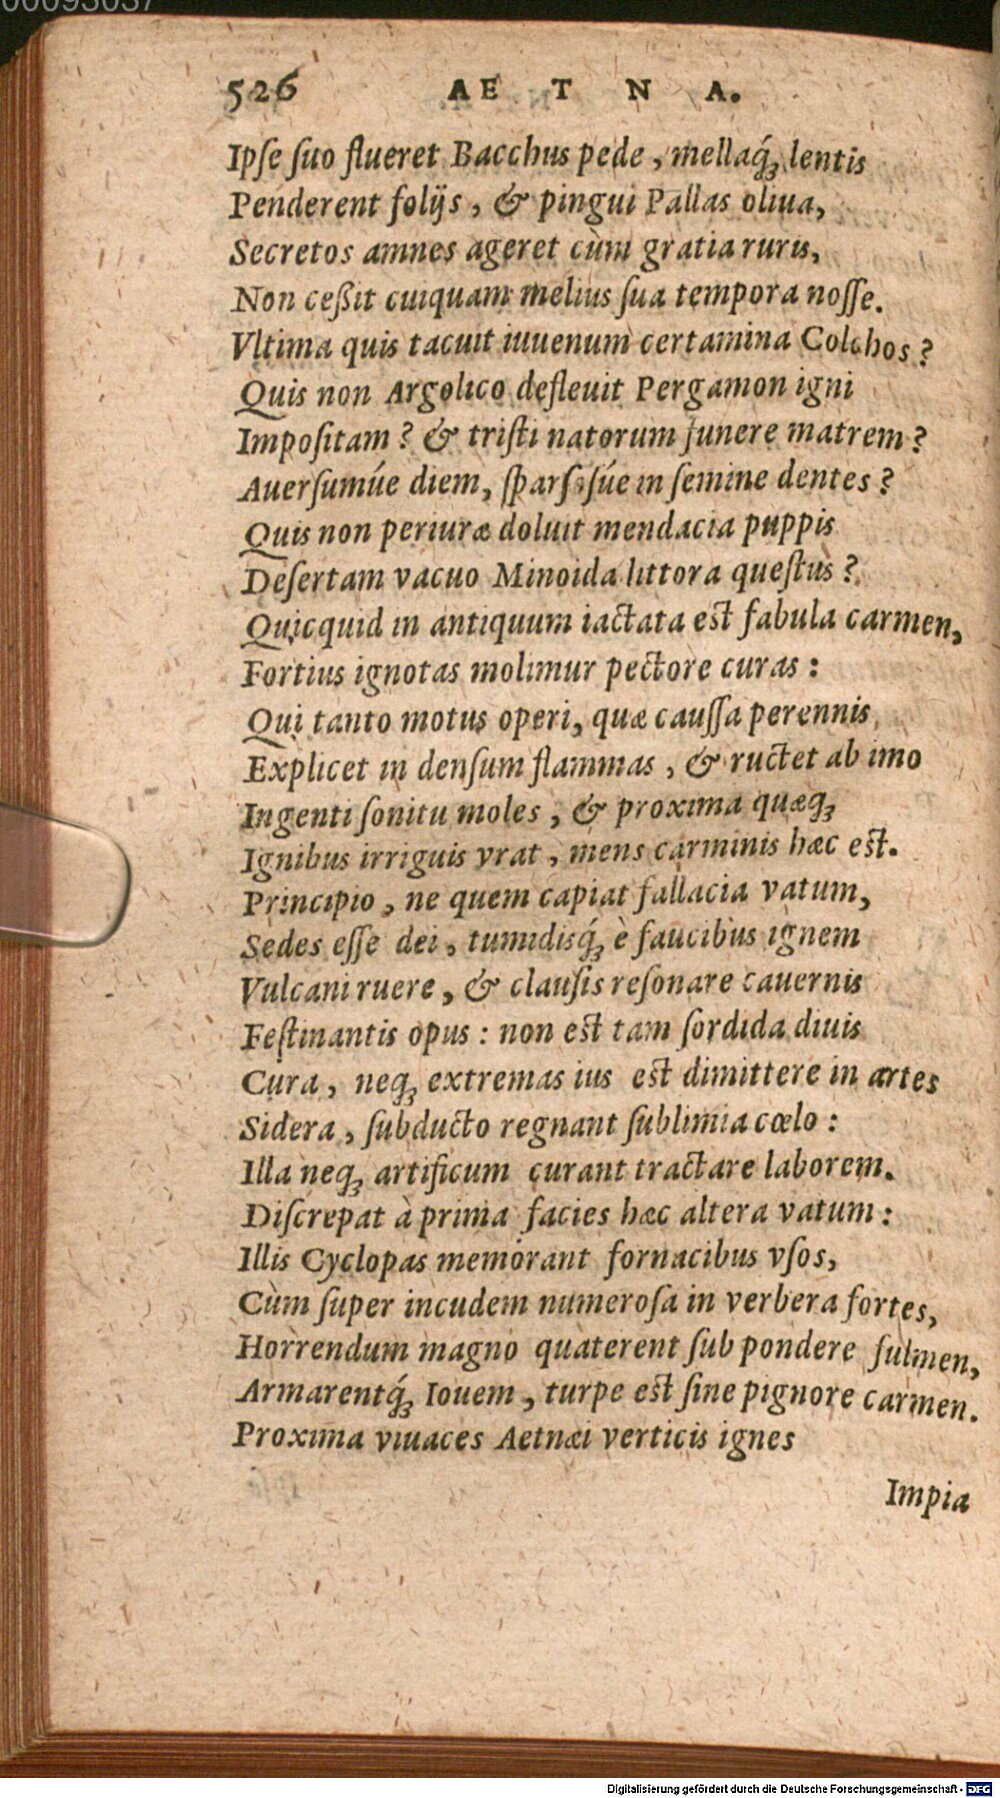 00093037
526 AE T N A.
Ipſe ſuo flueret Bacchus pede, mellaq́ꝫ lentis
Penderent folijs, & pingui Pallas oliua,
Secretos amnes ageret cùm gratia ruris,
Non ceßit cuiquam melius ſua tempora noſſe.
Vltima quis tacuit iuuenum certamina Colchos?
Quis non Argolico defleuit Pergamon igni
Impoſitam? & triſti natorum funere matrem?
Auerſumúe diem, ſparſoſúe in ſemine dentes?
Quis non periuræ doluit mendacia puppis
Deſertam vacuo Minoida littora queſtus?
Quicquid in antiquum iactata est fabula carmen,
Fortius ignotas molimur pectore curas:
Qui tanto motus operi, quæ cauſſa perennis
Explicet in denſum flammas, & ructet ab imo
Ingenti ſonitu moles, & proxima quæqꝫ
Ignibus irriguis vrat, mens carminis hæc est.
Principio, ne quem capiat fallacia vatum,
Sedes eſſe dei, tumidisq́ꝫ è faucibus ignem
Vulcani ruere, & clauſis reſonare cauernis
Feſtinantis opus: non est tam ſordida diuis
Cura, neqꝫ extremas ius est dimittere in artes
Sidera, ſubducto regnant ſublimia cœlo:
Illa neqꝫ artificum curant tractare laborem.
Diſcrepat à prima facies hæc altera vatum:
Illis Cyclopas memorant fornacibus vſos,
Cùm ſuper incudem numeroſa in verbera fortes,
Horrendum magno quaterent ſub pondere fulmen,
Armarentq́ꝫ Iouem, turpe est ſine pignore carmen.
Proxima viuaces Aetnæi verticis ignes
Impia
Digitalisierung gefördert durch die Deutsche Forschungsgemeinschaft - DFG